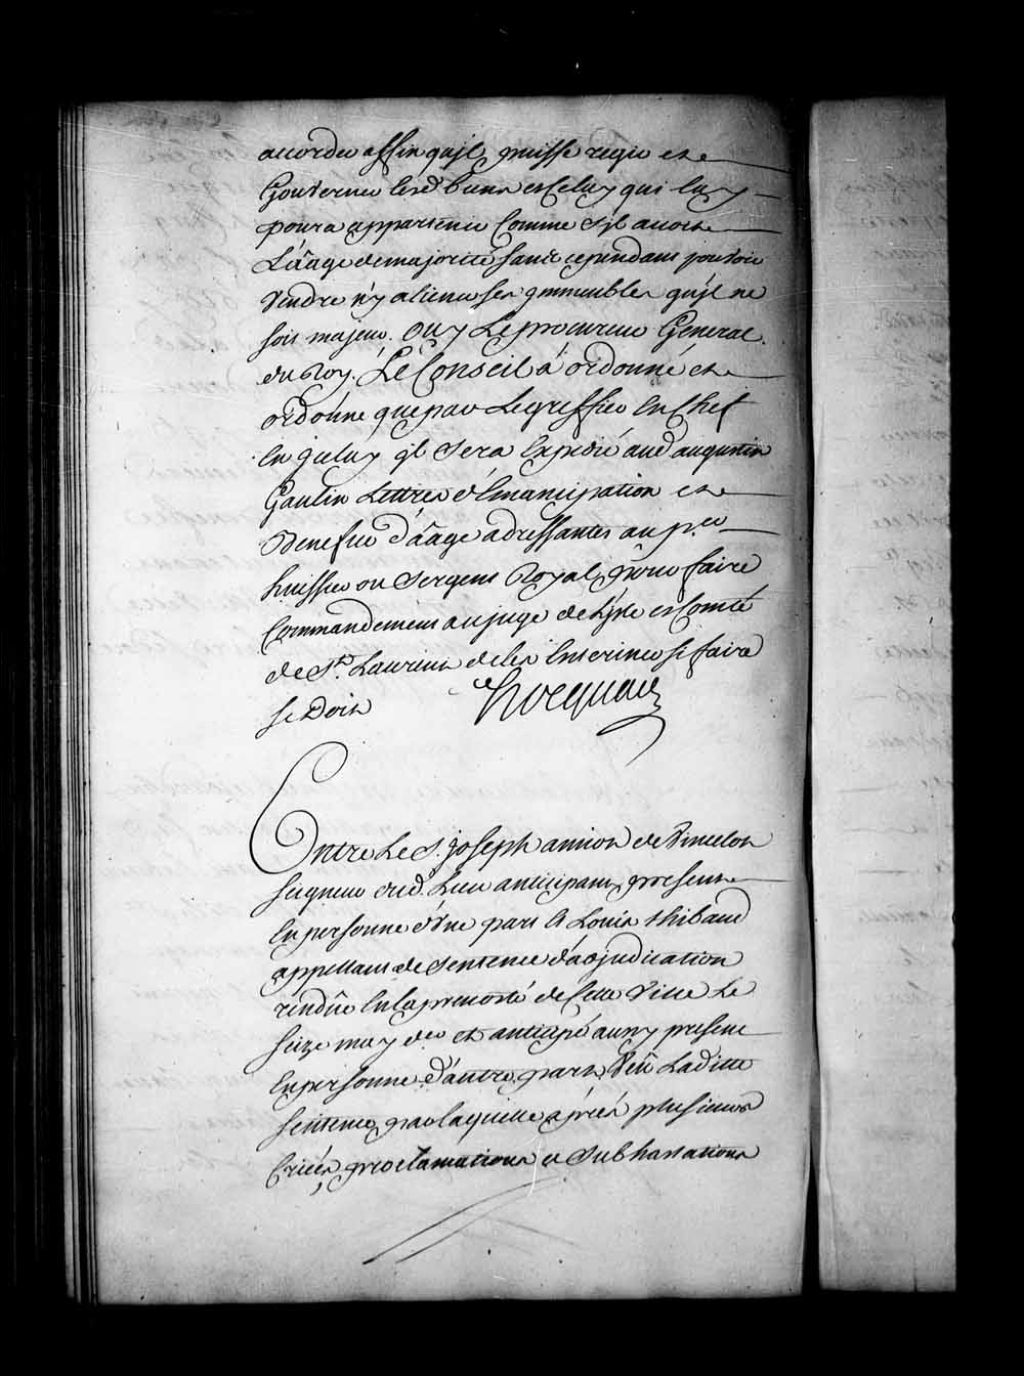 accorder affin qu'jl puisse regir et
Gouverner lesd. biens et Celuy qui luy
poura appartenir Comme s'jl avoit
L'aage de majorité sans cependant pouvoir
Vendre n'y aliener ses jmmeubles qu'jl ne
soit majeur. Ouy Le procureur General
du Roy. Le Conseil a ordonné et
ordonne que par Le greffier En Chef
En jceluy jl sera Expedié aud augustin
Gaulin Lettres d'Emancipation et
Benefice d'aage adressantes au p.er
huissier ou sergent Royal, pour faire
Commandement au juge de L'jsle et Comté
de St. Laurent de les Enteriner si faire
se Doit
hocquart
Entre Le S. joseph amiot de Vincelot
seigneur dud. Lieu anticipant, present
En personne d'Une part Et Louis thibaud
appellant de sentence d'adjudication
rendüe En La prevosté de Cette Ville Le
seize may der et anticipé aussy present
En personne d'autre part, Veu Laditte
sentence, par laquelle apres plusieurs
Criées, proclamations et subhastations